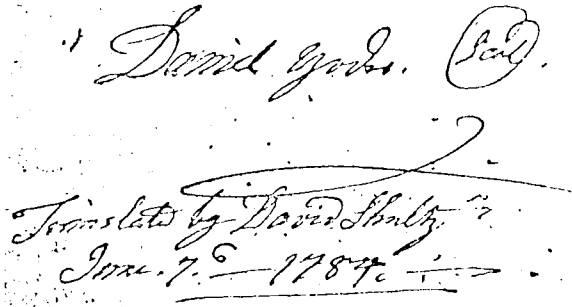 Daniel Yoder. Seal.
Translated by David Shultz
June. 7. 1784.